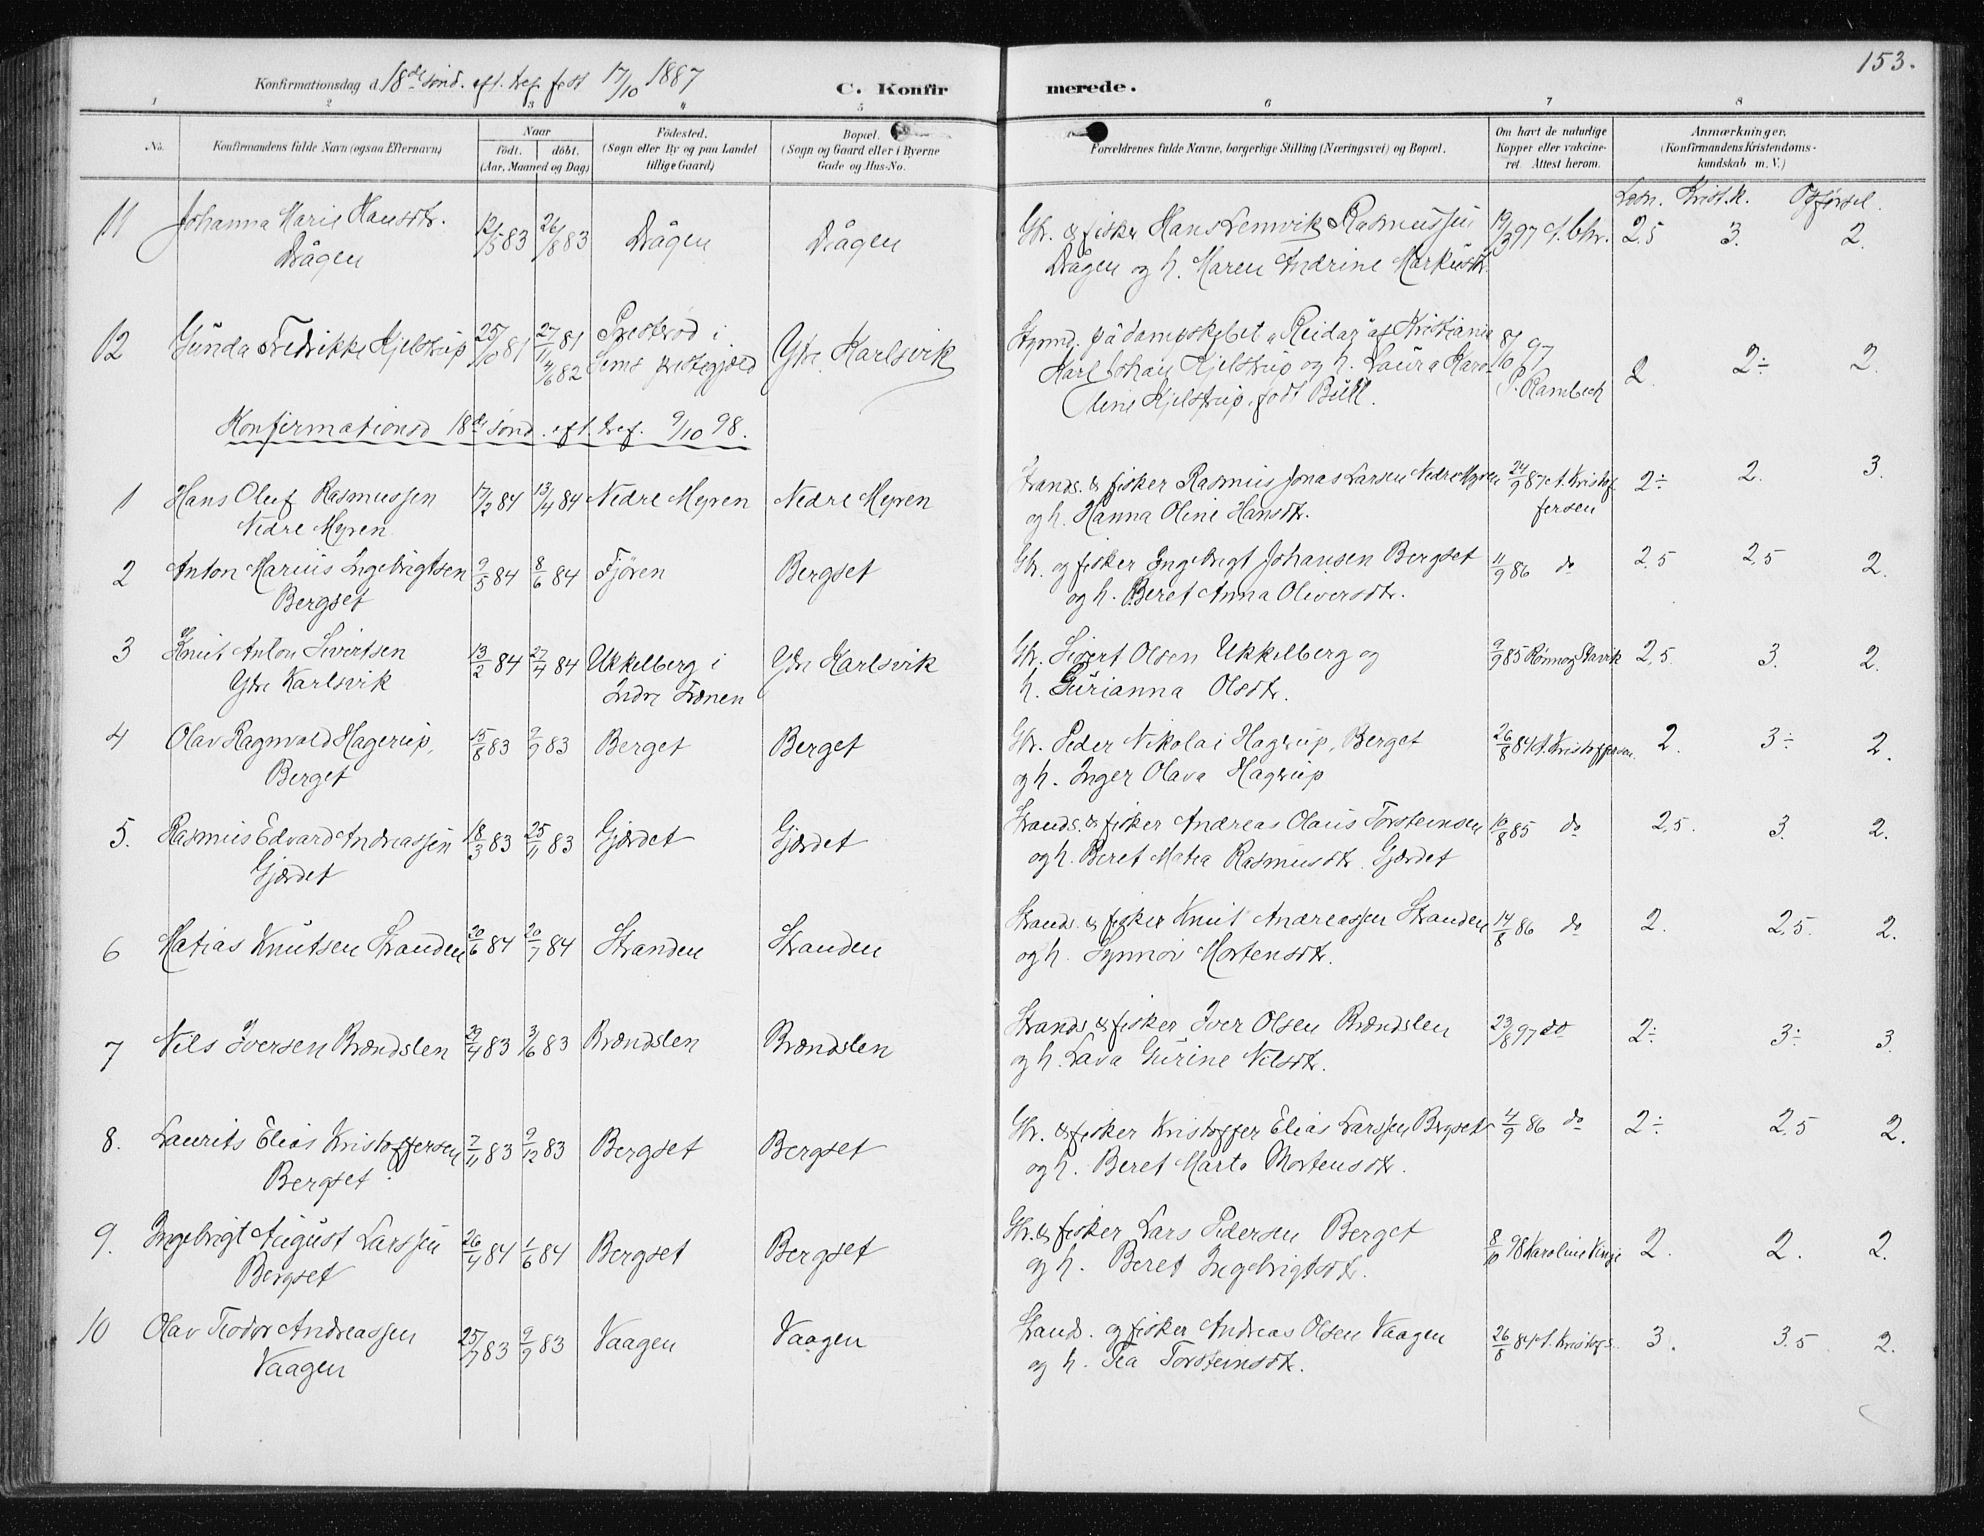 153.
Konfirmationsdag d. 18de sönd. eft. tref. fest 17/10 1887
C. Konfirmerede.
1 2 3 4 5 6 7 8
No. Konfirmandens fulde Navn (ogsaa Efternavn) Naar født. døbt. (Aar, Maaned og Dag) Fødested. (Sogn eller By og paa Landet tillige Gaard) Bopæl. (Sogn og Gaard eller i Byerne Gade og Hus-No. Forældrenes fulde Navne, borgerlige Stilling (Næringsvei) og Bopæl. Om havt de naturlige Kopper eller vaccineret. Attest herom. Anmærkninger. (Konfirmandens Kristendomskundskab m. V.)
Krist.k. Opførsel.
11 Johanna Marie Hansdtr. 12/5 83 26/8 83 Drågen Drågen Gbr. & fisker Hans Lemvik Rasmussen 19/3 97 A. Chr. 2,5 3. 2.
Drågen Drågen og h. Maren Andrine Markusdtr.
12 Gunda Fredrikke Kjelstrup 25/10 81 27/11 81 Prestrød i Ytre Karlsvik på dampskebet "Reidar" af Kristiania 8/10 97 2. 2÷ 2.
4/6 82 Sems prestegjeld Karl Johan Kjelstrup og h. Laura Karo- P. Rambech
line Kjelstrup, født Bull.
Konfirmationsd 18de sønd. eft. tref. 9/10 98.
1 Hans Oluf Rasmussen 17/2 84 13/4 84 Nedre Myren Nedre Myren Strands. & fisker Rasmus Jonas Larsen Nedre Myren 24/9 87 A. Kristof 2÷ 2. 3.
Nedre Myren og h. Hanna Oline Hansdtr. fersen
2 Anton Marius Ingebrigtsen 9/5 84 8/6 84 Fjøren Bergset Gbr. og fisker Ingebrigt Johansen Bergset 11/9 86 do 2,5 2,5 2.
Bergset og h. Beret Anna Oliversdtr.
3 Knut Anton Sivertsen 13/2 84 27/4 84 Ukkelberg i Ytre Karlsvik Gbr. Sivert Olsen Ukkelberg og 9/9 85 Rønnog Stavik 2,5. 3. 2.
Ytre Karlsvik Indre Frænen h. Gurianna Olsdtr.
4 Olav Ragnvald Hagerup, 15/8 83 9/9 83 Berget Berget Gbr. Peder Nikolai Hagerup, Berget 26/8 84 A. Kristoffersen 2. 3÷ 2.
Berget og h. Inger Olava Hagerup
5. Rasmus Edvard Andreassen 18/3 83 25/11 83 Gjærdet Gjærdet Strands. & fisker Andreas Olaus Torsteinsen 10/8 85 do 2,5. 3. 2.
Gjærdet og h. Beret Matea Rasmusdtr. Gjærdet
6 Matias Knutsen Stranden 20/6 84 20/7 84 Stranden Stranden Strands. & fisker Knut Andreassen Stranden 14/8 86 do 2. 2,5. 2.
og h. Synnøv Mortensdtr.
7 Nils Iversen Brændslen 29/4 83 3/6 83 Brændslen Brændslen Strands & fisker Iver Olsen Brændslen 23/8 97 do 2÷ 3÷ 3.
og h. Lava Gurine Nilsdtr.
8. Laurits Elias Kristoffersen 7/11 83 9/12 83 Bergset Bergset Gbr. & fisker Kristoffer Elias Larssen Bergset 4/9 86 do 2÷ 2,5 2.
Bergset og h. Beret Marta Mortensdtr.
9. Ingebrigt August Larssen 26/4 84 1/6 84 Bergset Bergset Gbr. & fisker Lars Pedersen Berget 8/10 98 Karoline 2. 2. 2.
Bergset og h. Beret Ingebrigtsdtr.
10 Olav Teodor Andreassen 25/7 83 9/9 83 Vaagen Vaagen Strands. og fisker Andreas Olsen Vaagen 26/8 84 A. Kristofs. 3. 3.5 2.
Vaagen og h. Tea Torsteinsdtr.